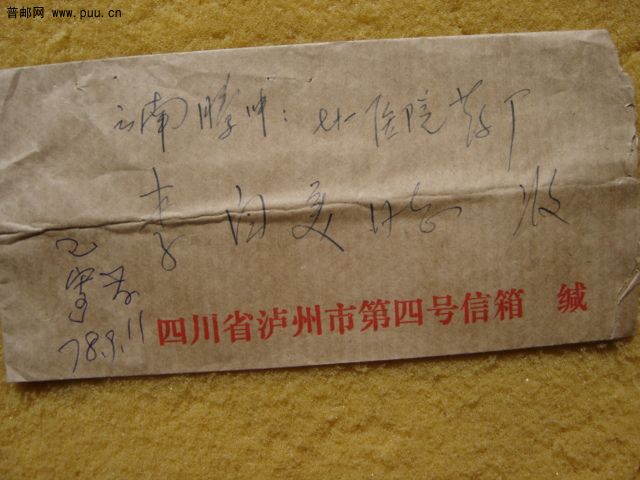 普邮网 www.puu.cn
云南腾冲：县医院药厂
李自美同志 收
已
78.9.11
四川省泸州市第四号信箱 缄